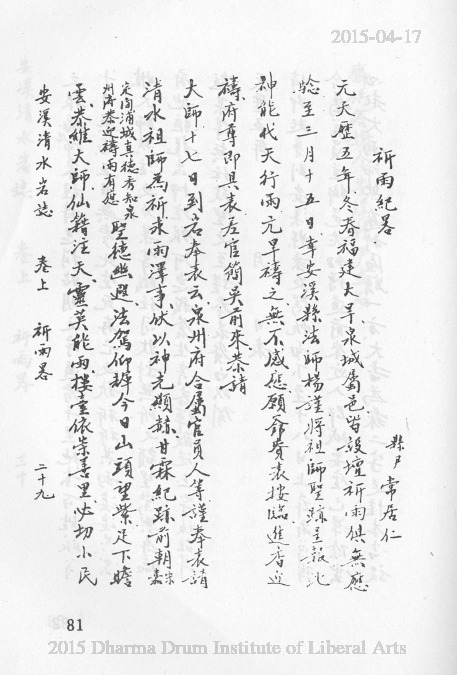 2015-04-17
祈雨紀畧
縣尹 常居仁
元天歷五年冬春福建大旱泉城屬邑皆設壇祈雨俱無應
驗至三月十五日幸安溪縣法師楊謹將祖師聖跡呈報此
神能代天行雨亢旱禱之無不感應願命費表接臨進香迎
禱府尊即具表差官簡吳前來恭請
大師十七日到岩奉表云泉州府合屬官員人等謹奉表請
清水祖師為祈求雨澤事伏以神光顯赫甘霖紀跡前朝宋嘉
定間浦城真德秀知泉州府恭迎禱雨有應聖德幽遐法駕仰祈今日山頭望紫足下瞻
雲恭維大師仙籍注天靈英能雨樓臺依崇善里必切小民
安溪清水岩誌 卷上 祈雨畧 二十九
81
2015 Dharma Drum Institute of Liberal Arts